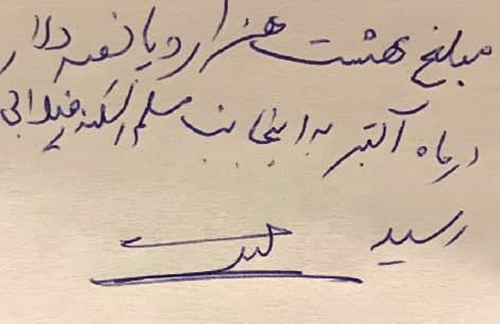 مبلغ هشت هزار و پانصد دلار
در ماه آکتبر به اینجانب مسلم اسکندر فیلابی
رسید